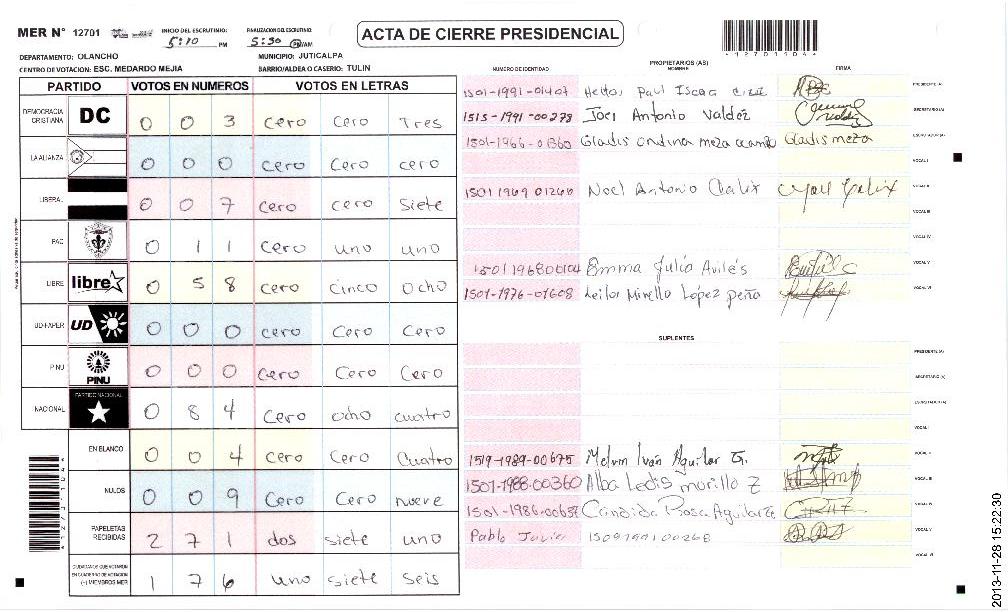 MER N° 12701 INICIO DEL ESCRUTINIO: 5:10 PM FINALIZACION DEL ESCRUTINIO: 5:30 PM/AM
ACTA DE CIERRE PRESIDENCIAL
DEPARTAMENTO: OLANCHO MUNICIPIO: JUTICALPA
CENTRO DE VOTACION: ESC. MEDARDO MEJIA BARRIO/ALDEA O CASERIO: TULIN
PARTIDO VOTOS EN NUMEROS VOTOS EN LETRAS
DEMOCRACIA CRISTIANA DC 0 0 3 cero cero Tres
LA ALIANZA 0 0 0 cero cero cero
LIBERAL 0 0 7 cero cero siete
PAC 0 1 1 cero uno uno
LIBRE libre 0 5 8 cero cinco ocho
UD-FAPER UD 0 0 0 cero cero cero
PINU PINU 0 0 0 cero cero cero
NACIONAL PARTIDO NACIONAL 0 8 4 cero ocho cuatro
EN BLANCO 0 0 4 cero cero cuatro
NULOS 0 0 9 cero cero nueve
PAPELETAS RECIBIDAS 2 7 1 dos siete uno
CIUDADANOS QUE VOTARON EN CUADERNO DE VOTACION (+) MIEMBROS MER 1 7 6 uno siete seis
PROPIETARIOS (AS)
NUMERO DE IDENTIDAD NOMBRE FIRMA
1501-1991-01407 Hector Paul PRESIDENTE (A)
1515-1991-00278 Joel Antonio Valdéz SECRETARIO (A)
1501-1966-01360 Gladis ondina meza Gladis meza ESCRUTADOR (A)
VOCAL I
1501 1969 01266 Noel Antonio Chalix VOCAL II
VOCAL III
VOCAL IV
1501 1968 00104 Emma Julia Avilés VOCAL V
1501-1976-01608 Leila Mirella López peña VOCAL VI
SUPLENTES
PRESIDENTE (A)
SECRETARIO (A)
ESCRUTADOR (A)
VOCAL I
1519-1989-00675 Melvin Iván Aguilar G. VOCAL II
1501-1988-00360 Alba Ledis morillo Z VOCAL III
1501-1986-00637 Candida Rosa Aguilar VOCAL IV
Pablo Julio 1509199100268 VOCAL V
VOCAL VI
2013-11-28 15:22:30